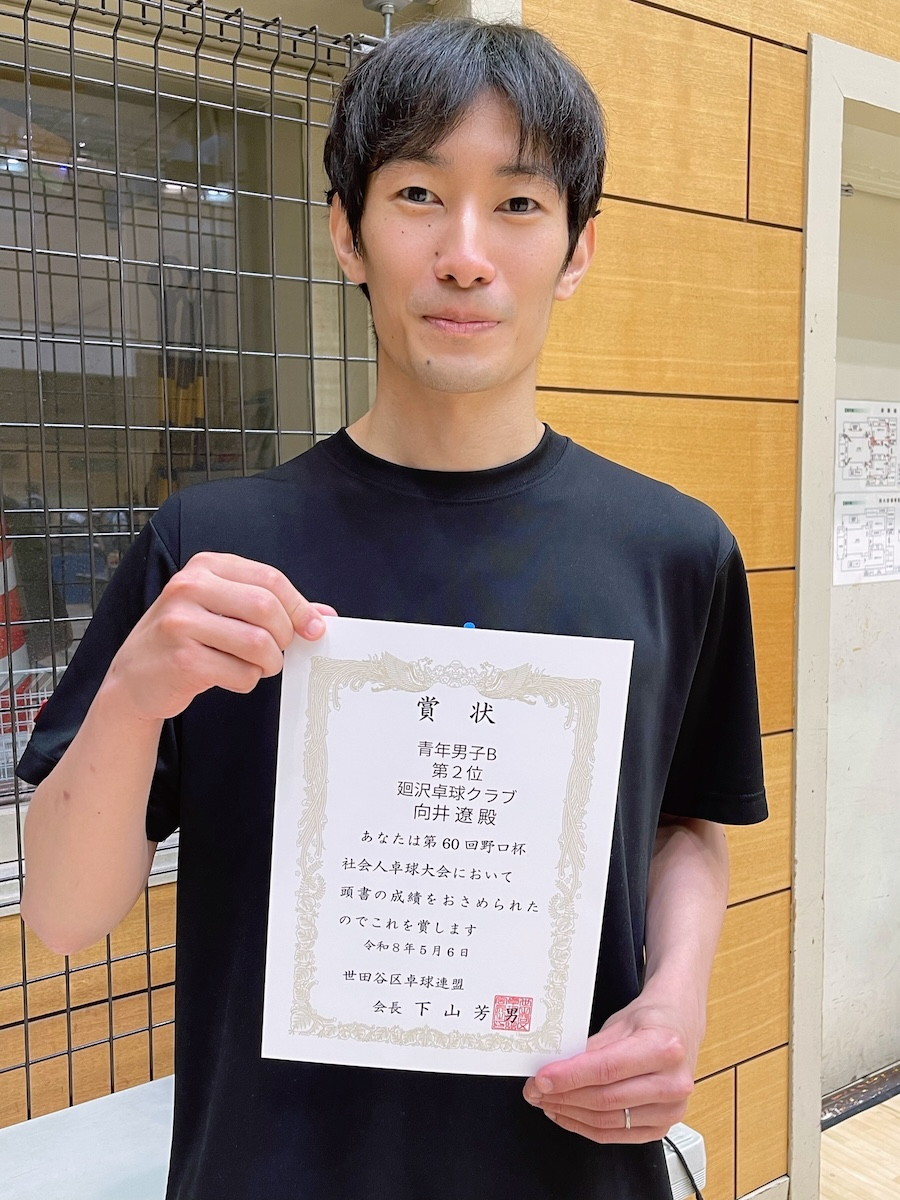 賞 状
青年男子B
第２位
廻沢卓球クラブ
向井 遼 殿
あなたは第 60 回野口杯
社会人卓球大会において
頭書の成績をおさめられた
のでこれを賞します
令和８年５月６日
世田谷区卓球連盟
会長 下 山 芳 男